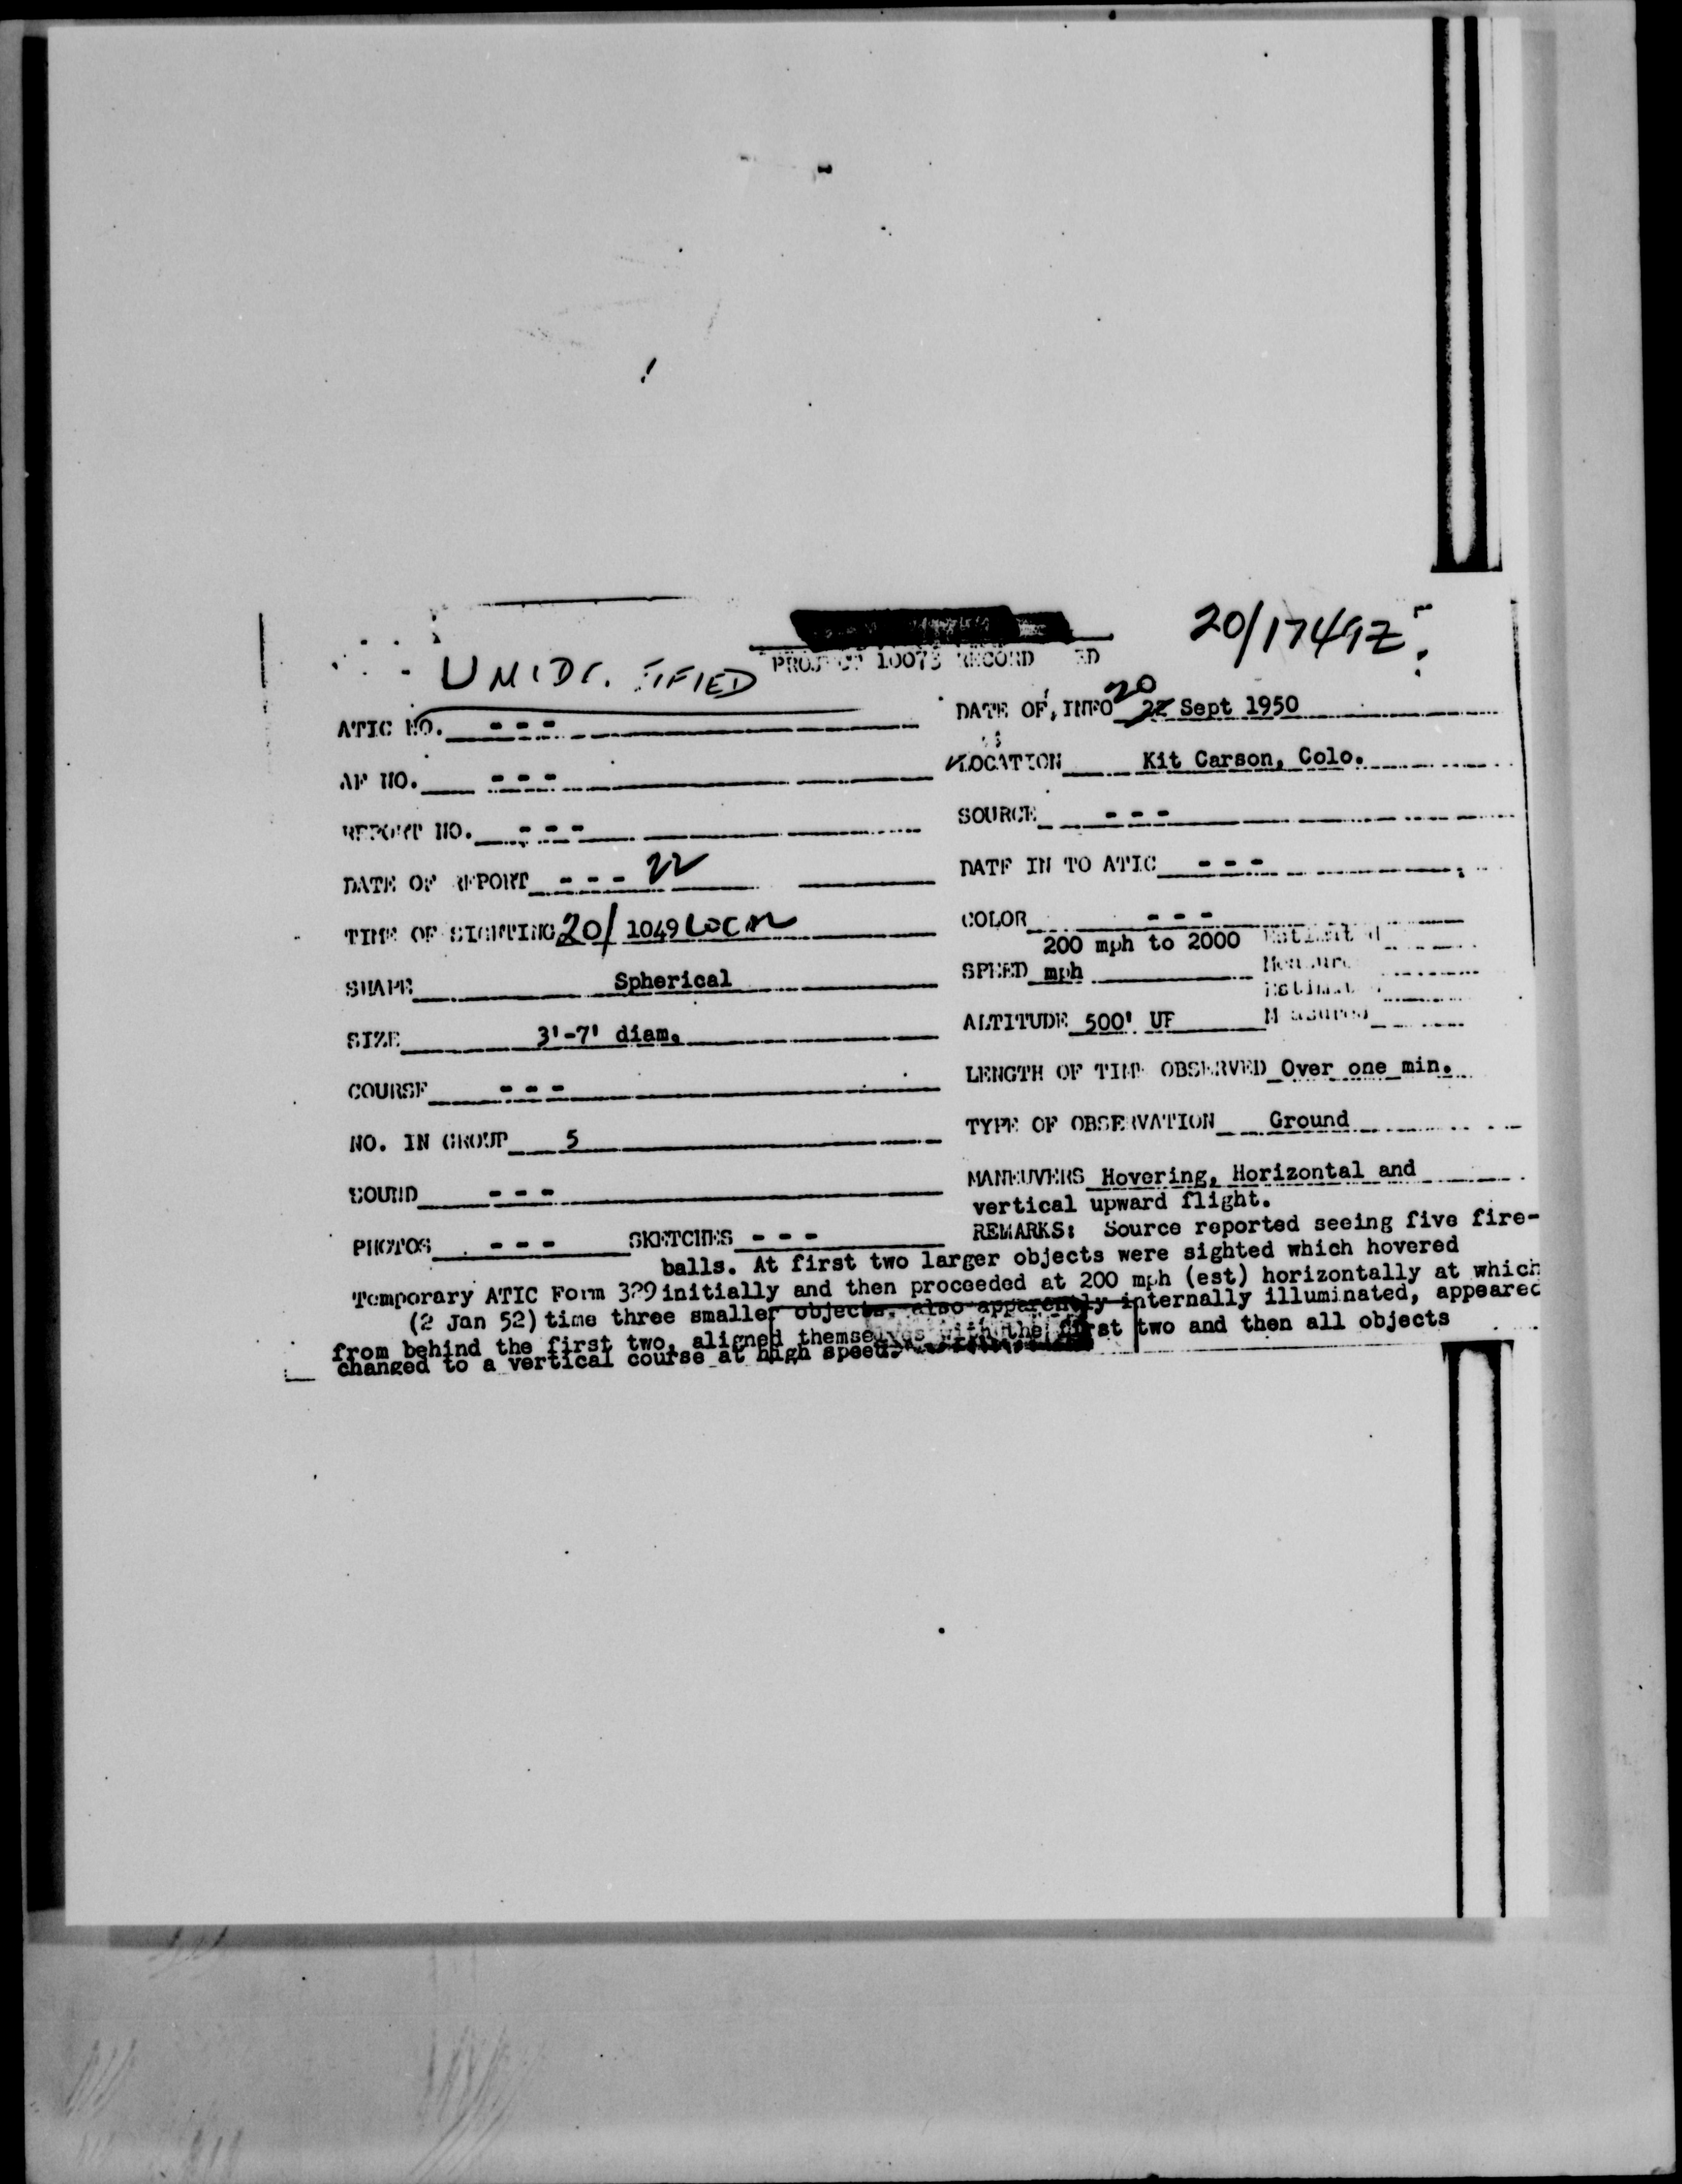 20/1749Z
UNIDE TIFIED PROJECT 10073 RECORD
ATIC NO. --- DATE OF INFO 20 22 Sept 1950
AF NO. --- LOCATION Kit Carson, Colo.
REPORT NO. --- SOURCE ---
DATE OF REPORT --- 22 DATE IN TO ATIC ---
TIME OF SIGHTING 20/ 1049 LOCAL COLOR ---
200 mph to 2000 Estimated
SHAPE Spherical SPEED mph Measured
Estimated
SIZE 3'-7' diam. ALTITUDE 500' UF Measured
COURSE --- LENGTH OF TIME OBSERVED Over one min.
NO. IN GROUP 5 TYPE OF OBSERVATION Ground
SOUND --- MANEUVERS Hovering, Horizontal and
vertical upward flight.
PHOTOS --- SKETCHES --- REMARKS: Source reported seeing five fire-
balls. At first two larger objects were sighted which hovered
Temporary ATIC Form 329 initially and then proceeded at 200 mph (est) horizontally at which
(2 Jan 52) time three smaller objects, also apparently internally illuminated, appeared
from behind the first two, aligned themselves with the first two and then all objects
changed to a vertical course at high speed.